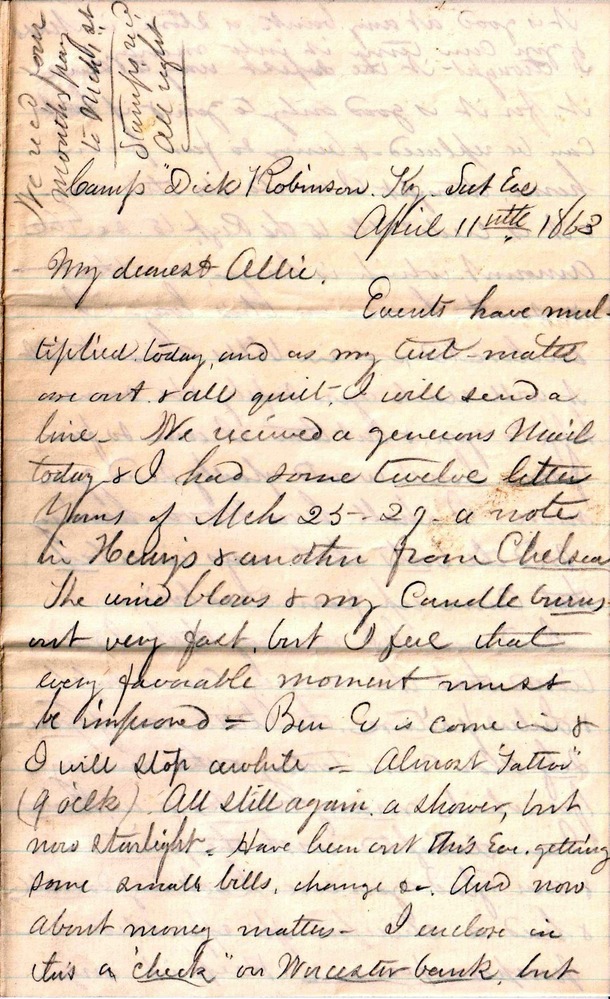 We rec'd four
months pay
to Mch 1st
Stamps rec'd
All right
Camp "Dick" Robinson. Ky. Sat Eve
April 11th 1863
My dearest Allie.
Events have mul-
tiplied today, and as my tent-mates
are out & all quiet, I will send a
line - We received a generous Mail
today & I had some twelve letters
Yours of Mch 25-29- a note
in Henrys & another from Chelsea
The wind blows & my Candle burns
out very fast, but I feel that
every favorable moment must
be improved = Ben E is come in &
I will stop awhile - Almost "Tattoo"
(9 o'clk) All still again. a shower, but
now starlight. Have been out this Eve. getting
some small bills, change &c. And now
about money matters - I enclose in
this a "check" on Worcester bank, but